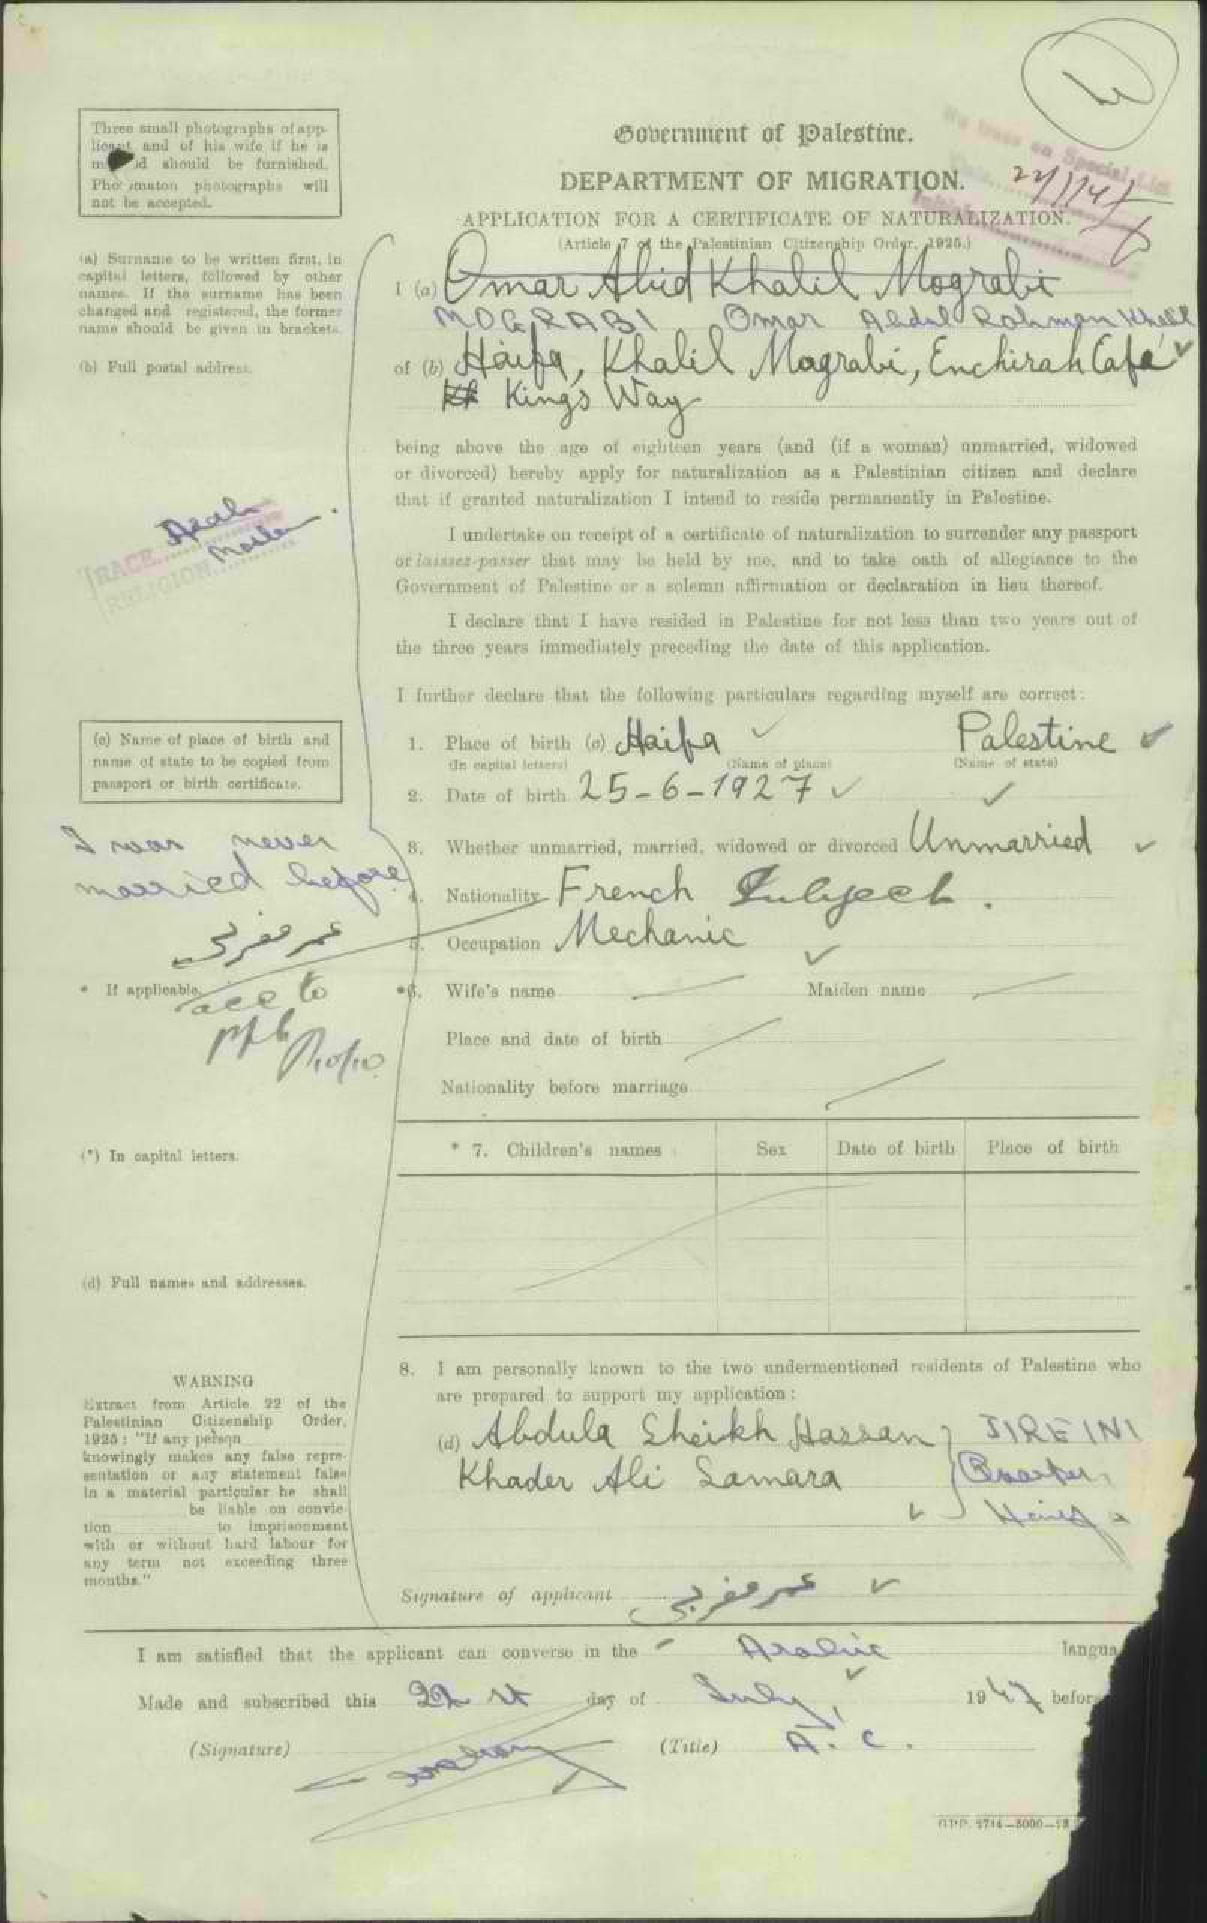 Three small photographs of app-
licant and of his wife if he is
should be furnished.
Photomaton photographs will
not be accepted.
Government of Palestine.
DEPARTMENT OF MIGRATION.
APPLICATION FOR A CERTIFICATE OF NATURALIZATION.
(Article 7 of the Palestinian Citizenship Order, 1925.)
(a) Surname to be written first, in
capital letters, followed by other
names. If the surname has been
changed and registered, the former
name should be given in brackets.
I (a) Omar Abid Khalil Mograbi
MOGRABI Omar Abdul Rahman Khalil
(b) Full postal address.
of (b) Haifa, Khalil Mograbi, Enchirah Cafe
Kings Way
being above the age of eighteen years (and (if a woman) unmarried, widowed
or divorced) hereby apply for naturalization as a Palestinian citizen and declare
that if granted naturalization I intend to reside permanently in Palestine.
I undertake on receipt of a certificate of naturalization to surrender any passport
or laissez-passer that may be held by me, and to take oath of allegiance to the
Government of Palestine or a solemn affirmation or declaration in lieu thereof.
RACE Arab
RELIGION Moslem
I declare that I have resided in Palestine for not less than two years out of
the three years immediately preceding the date of this application.
I further declare that the following particulars regarding myself are correct:
(c) Name of place of birth and
name of state to be copied from
passport or birth certificate.
1. Place of birth (c) Haifa Palestine
(In capital letters) (Name of place) (Name of state)
2. Date of birth 25-6-1927
3. Whether unmarried, married, widowed or divorced Unmarried
I was never
married before
عمر مغربي
4. Nationality French Subject.
5. Occupation Mechanic
* If applicable.
acc to
*6. Wife's name Maiden name
Place and date of birth
Nationality before marriage
(*) In capital letters.
* 7. Children's names Sex Date of birth Place of birth
(d) Full names and addresses.
8. I am personally known to the two undermentioned residents of Palestine who
are prepared to support my application:
(d) Abdula Sheikh Hassan JIREINI
Khader Ali Samara Quarter,
Haifa
WARNING
Extract from Article 22 of the
Palestinian Citizenship Order,
1925: "If any person
knowingly makes any false repre-
sentation or any statement false
in a material particular he shall
be liable on convic-
tion to imprisonment
with or without hard labour for
any term not exceeding three
months."
Signature of applicant عمر مغربي
I am satisfied that the applicant can converse in the Arabic langua
Made and subscribed this 22 day of July, 1947 before
(Signature) (Title) A. C.
GPP. 2714—5000—